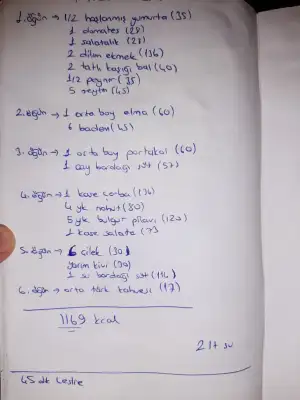 1. öğün → 1/2 haşlanmış yumurta (35)
1 domates (28)
1 salatalık (28)
2 dilim ekmek (136)
2 tatlı kaşığı bal (40)
1/2 peynir (35)
5 zeytin (45)
2. öğün → 1 orta boy elma (60)
6 badem (45)
3. öğün → 1 orta boy portakal (60)
1 çay bardağı süt (57)
4. öğün → 1 kase çorba (136)
4 yk nohut (80)
5 yk bulgur pilavı (120)
1 kase salata
5. öğün → 6 çilek (30)
yarım kivi (30)
1 su bardağı süt (114)
6. öğün → orta türk kahvesi (17)
1169 kcal
2 lt su
45 dk